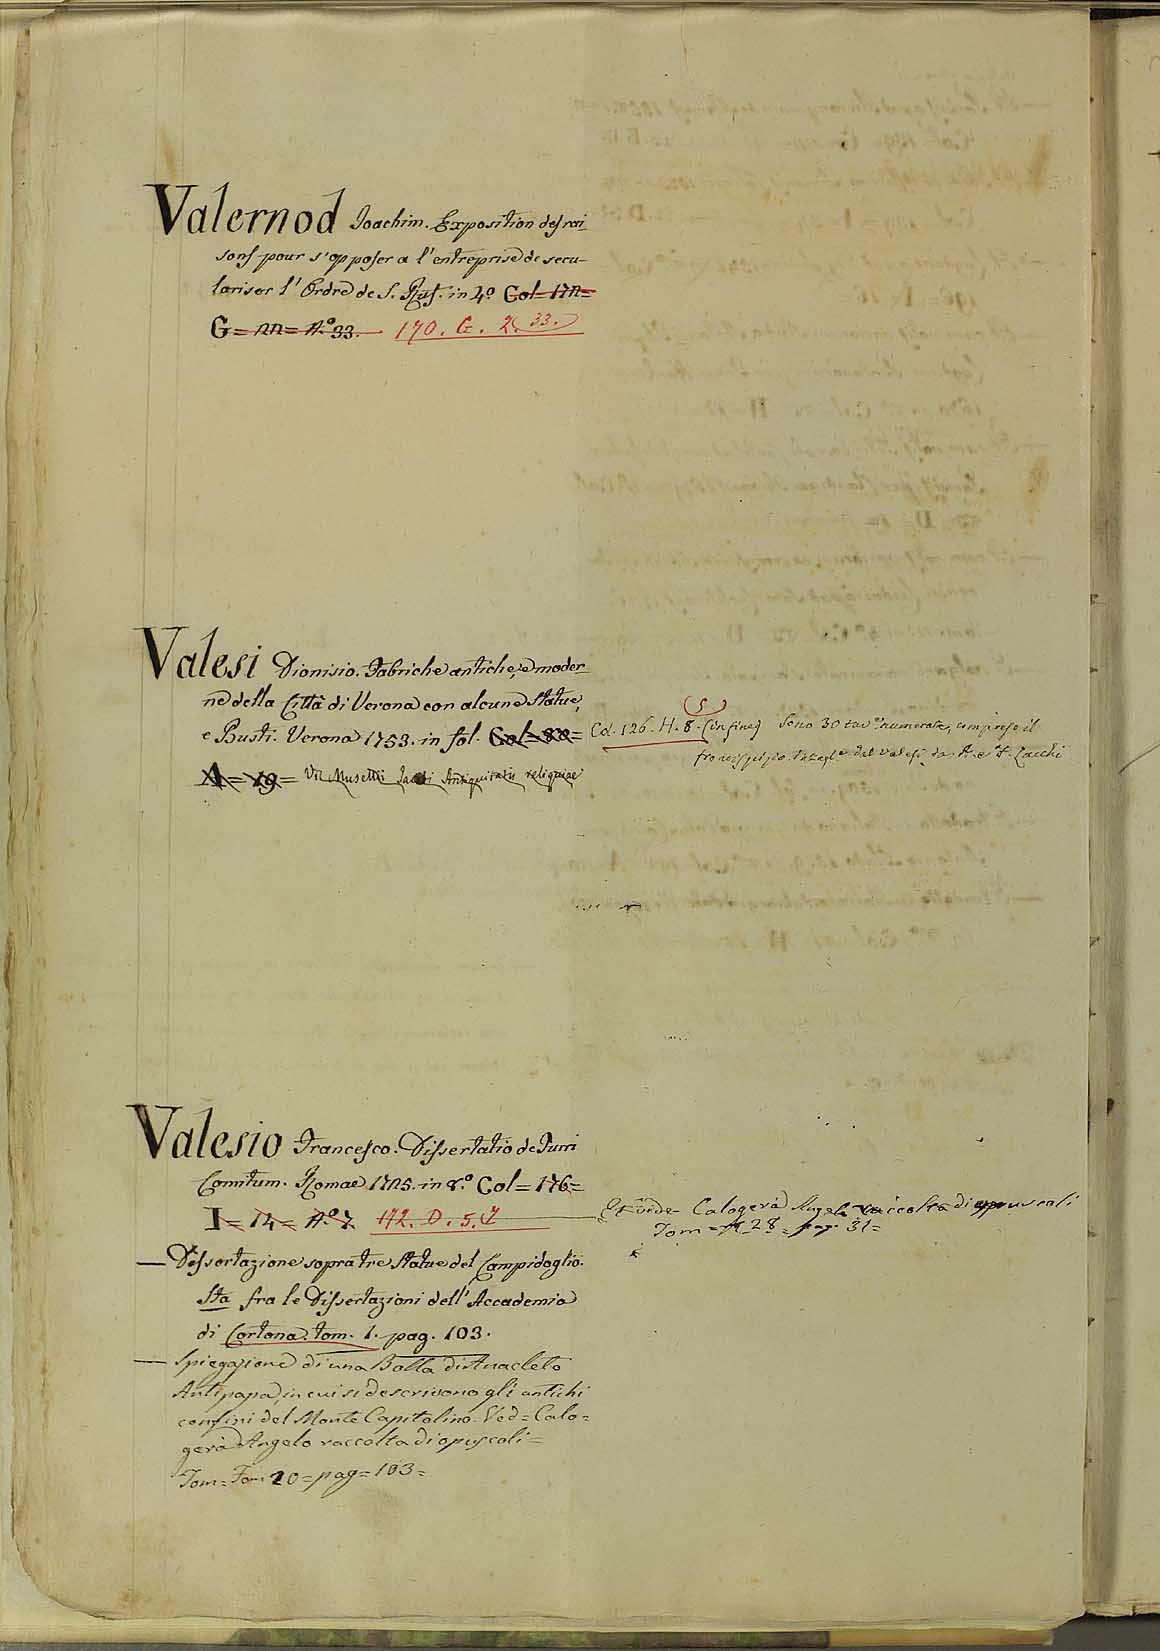 Valernod Joachim. Exposition des rai=
sons pour s'opposer a l'entreprise de secu-
lariser l'Ordre de S. Ruf. in 4º Col=172=
G=22=Nº 33. 170. G. 2. 33.
Valesi Dionisio. Fabriche antiche, e moder=
ne della Città di Verona con alcune Statue,
e Busti. Verona 1753. in fol. Col=80=
A=19= Musellii Jacobi Antiquitatis reliquiae
5
Col. 126. H. 8. (in fine) Sono 30 tav.e numerate, compreso il
frontespizio. dal Valesi da
Valesio Francesco. Dissertatio de Turri
Comitum. Romae 1725. in 8.º Col=176=
I=14=Nº 7 172. D. 5. 7
Et vide Calogerà Angelo raccolta di opuscoli
Tom= 28= pag. 31=
— Dissertazione sopra tre Statue del Campidoglio.
Sta fra le Dissertazioni dell'Accademia
di Cortona. tom. 1. pag. 103.
— Spiegazione di una Bolla di Anacleto
Antipapa, in cui si descrivono gli antichi
confini del Monte Capitolino. Ved=Calo=
gerà Angelo raccolta di opuscoli=
Tom=Tom 20=pag=103=